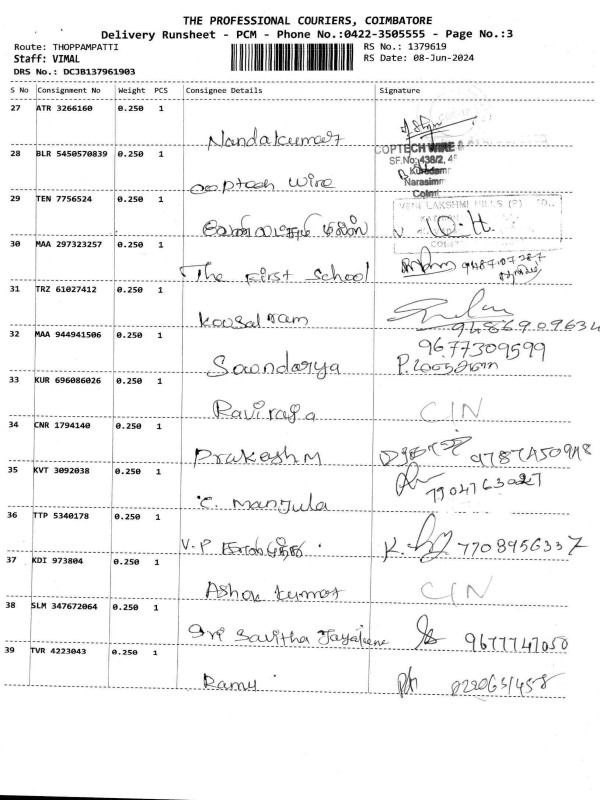 THE PROFESSIONAL COURIERS, COIMBATORE
Delivery Runsheet - PCM - Phone No.:0422-3505555 - Page No.:3
Route: THOPPAMPATTI RS No.: 1379619
Staff: VIMAL RS Date: 08-Jun-2024
DRS No.: DCJB137961903
S No Consignment No Weight PCS Consignee Details Signature
27 ATR 3266160 0.250 1
Nandakumar
28 BLR 5450570839 0.250 1 COPTECH WIRE &
SF.No:438/2, 4
Kurudam
Narasim
Coimb
Cooptech wire
29 TEN 7756524 0.250 1 VENI LAKSHMI MILLS (P) LTD.,
30 MAA 297323257 0.250 1
The First School 9487107287
31 TRZ 61027412 0.250 1
Kousalram 9486909634
32 MAA 944941506 0.250 1 9677309599
Soundarya
33 KUR 696086026 0.250 1
Raviraja C/N
34 CNR 1794140 0.250 1
Prakash M
35 KVT 3092038 0.250 1
C. Manjula
36 TTP 5340178 0.250 1
V.P K. 7708956337
37 KDI 973804 0.250 1
Ashok Kumar C/N
38 SLM 347672064 0.250 1
Sri Savitha 9677747050
39 TVR 4223043 0.250 1
Ramu